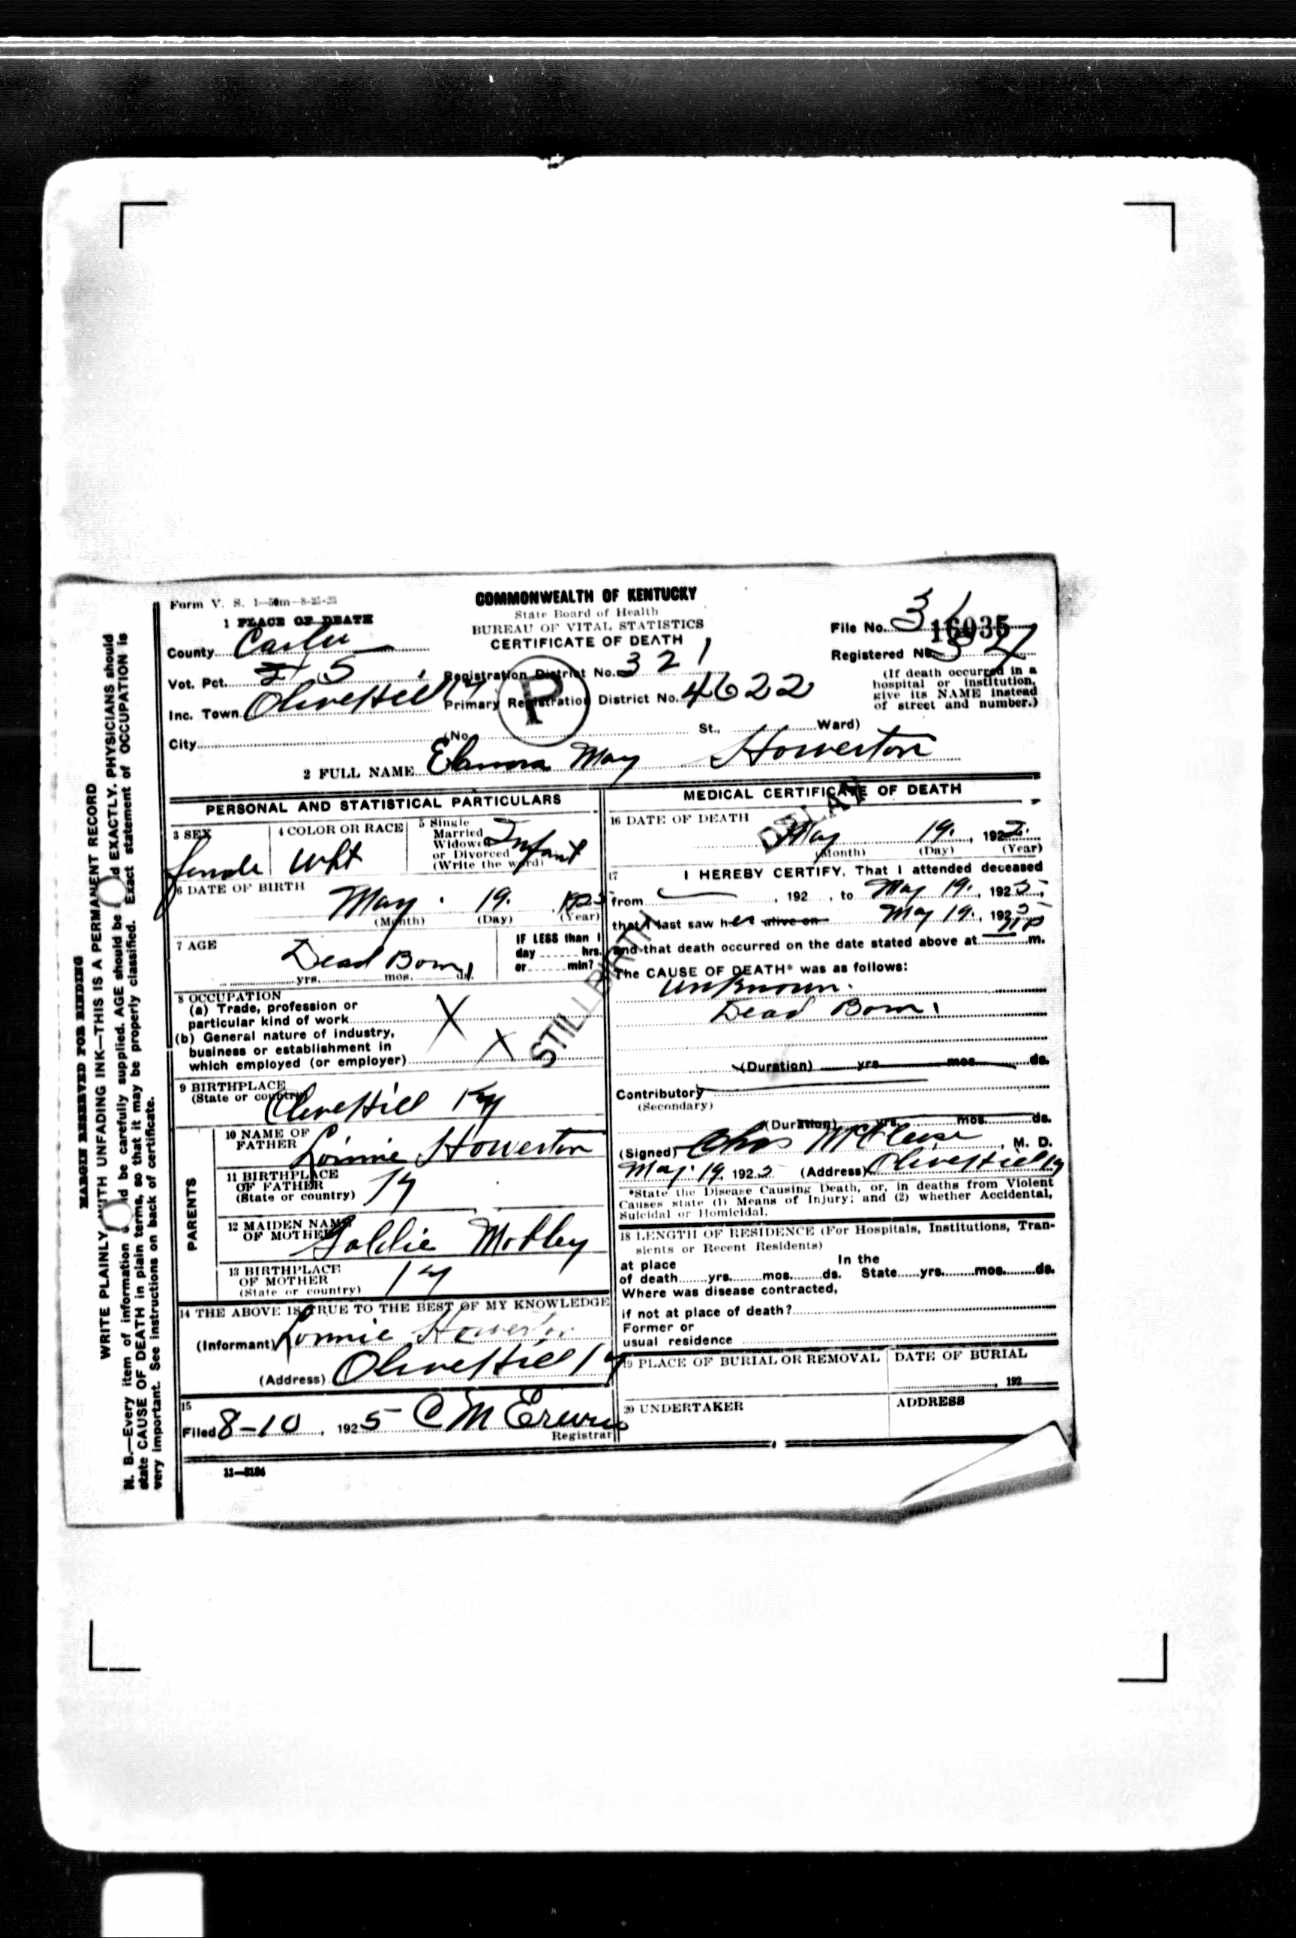 Form V. S. 1—50m—8-25-23
COMMONWEALTH OF KENTUCKY
State Board of Health
BUREAU OF VITAL STATISTICS
CERTIFICATE OF DEATH
1 PLACE OF DEATH
County Carter
Vot. Pct. 5
Inc. Town Olive Hill Ky
City
(No. St., Ward)
Registration District No. 321
Primary Registration District No. 4622
P
File No. 31 16935
Registered No. 37
(If death occurred in a
hospital or institution,
give its NAME instead
of street and number.)
2 FULL NAME May Howerton
PERSONAL AND STATISTICAL PARTICULARS
3 SEX female
4 COLOR OR RACE Wht
5 Single
Married
Widowed
or Divorced
(Write the word) Infant
6 DATE OF BIRTH
May 19. 1925
(Month) (Day) (Year)
7 AGE
Dead Born
yrs. mos. ds.
IF LESS than 1
day hrs.
or min?
8 OCCUPATION
(a) Trade, profession or
particular kind of work X
(b) General nature of industry,
business or establishment in
which employed (or employer) X
STILLBIRTH
9 BIRTHPLACE
(State or country) Olive Hill Ky
PARENTS
10 NAME OF
FATHER Lonnie Howerton
11 BIRTHPLACE
OF FATHER
(State or country) Ky
12 MAIDEN NAME
OF MOTHER Goldie Mobley
13 BIRTHPLACE
OF MOTHER
(State or country) Ky
14 THE ABOVE IS TRUE TO THE BEST OF MY KNOWLEDGE
(Informant) Lonnie Howerton
(Address) Olive Hill Ky
15
Filed 8-10, 1925 C M
Registrar
11—3184
MEDICAL CERTIFICATE OF DEATH
DELAY
16 DATE OF DEATH
May 19. 192
(Month) (Day) (Year)
17 I HEREBY CERTIFY, That I attended deceased
from , 192 , to May 19, 1925,
that I last saw her alive on May 19, 1925
and that death occurred on the date stated above at m.
The CAUSE OF DEATH* was as follows:
Unknown.
Dead Born
(Duration) yrs. mos. ds.
Contributory
(Secondary)
(Duration) yrs. mos. ds.
(Signed) Chas , M. D.
May. 19, 1925 (Address) Olive Hill Ky
*State the Disease Causing Death, or, in deaths from Violent
Causes state (1) Means of Injury; and (2) whether Accidental,
Suicidal or Homicidal.
18 LENGTH OF RESIDENCE (For Hospitals, Institutions, Tran-
sients or Recent Residents)
at place In the
of death yrs. mos. ds. State yrs. mos. ds.
Where was disease contracted,
if not at place of death?
Former or
usual residence
19 PLACE OF BURIAL OR REMOVAL
DATE OF BURIAL
, 192
20 UNDERTAKER
ADDRESS
MARGIN RESERVED FOR BINDING
WRITE PLAINLY WITH UNFADING INK—THIS IS A PERMANENT RECORD
N. B.—Every item of information should be carefully supplied. AGE should be stated EXACTLY. PHYSICIANS should
state CAUSE OF DEATH in plain terms, so that it may be properly classified. Exact statement of OCCUPATION is
very important. See instructions on back of certificate.